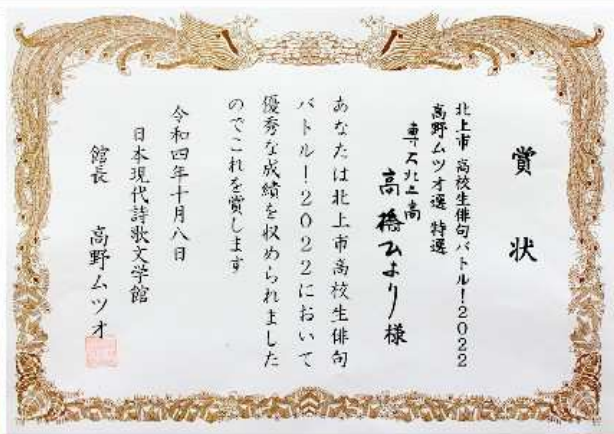 賞状
北上市 高校生俳句バトル！２０２２
高野ムツオ選 特選
専大北上高
高橋ひより様
あなたは北上市高校生俳句
バトル！２０２２において
優秀な成績を収められました
のでこれを賞します
令和四年十月八日
日本現代詩歌文学館
館長 高野ムツオ